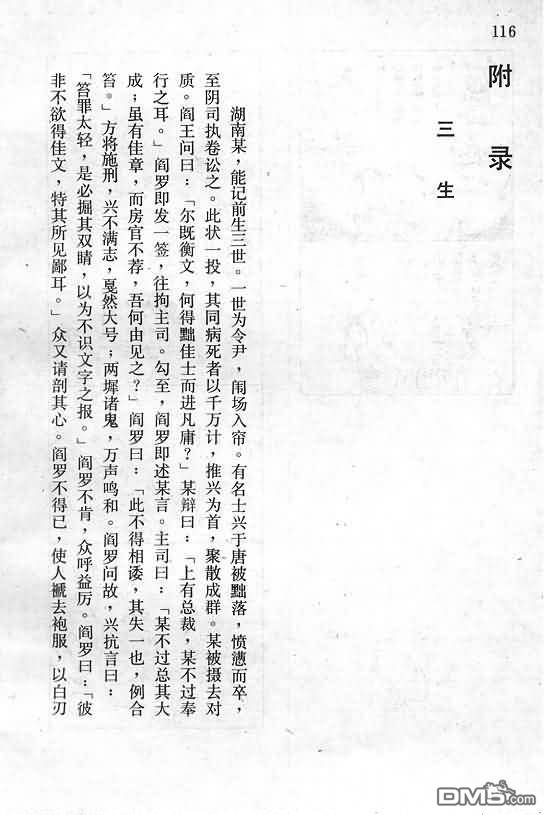 116
附录
三生
湖南某，能记前生三世。一世为令尹，闱场入帘。有名士兴于唐被黜落，愤懑而卒，
至阴司执卷讼之。此状一投，其同病死者以千万计，推兴为首，聚散成群。某被摄去对
质。阎王问曰：「尔既衡文，何得黜佳士而进凡庸？」某辩曰：「上有总裁，某不过奉
行之耳。」阎罗即发一签，往拘主司。勾至，阎罗即述某言。主司曰：「某不过总其大
成；虽有佳章，而房官不荐，吾何由见之？」阎罗曰：「此不得相诿，其失一也，例合
笞。」方将施刑，兴不满志，戛然大号；两墀诸鬼，万声鸣和。阎罗问故，兴抗言曰：
「笞罪太轻，是必掘其双睛，以为不识文字之报。」阎罗不肯，众呼益厉。阎罗曰：「彼
非不欲得佳文，特其所见鄙耳。」众又请剖其心。阎罗不得已，使人褫去袍服，以白刃
DM5.com